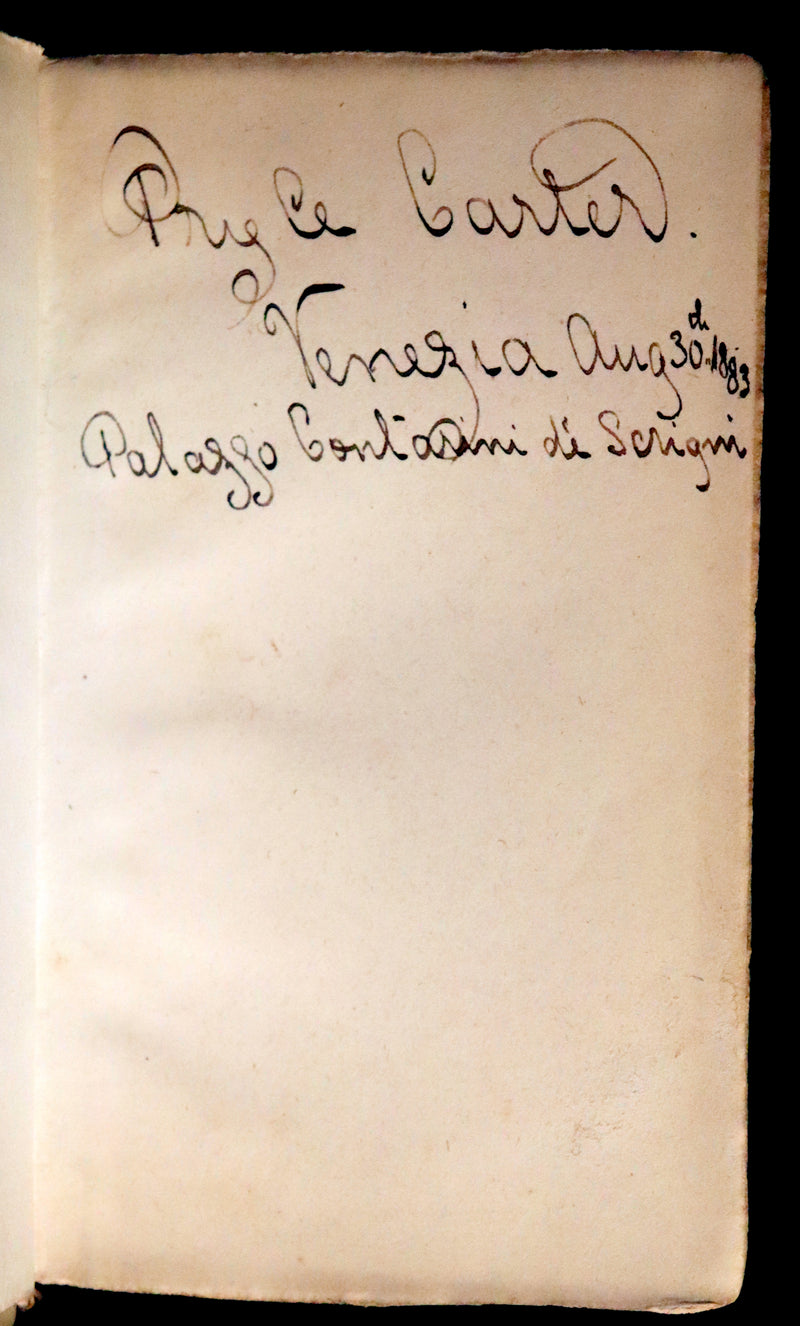 Pryce Carter.
Venezia Aug 30th. 1883
Palazzo Contarini de Scrigni